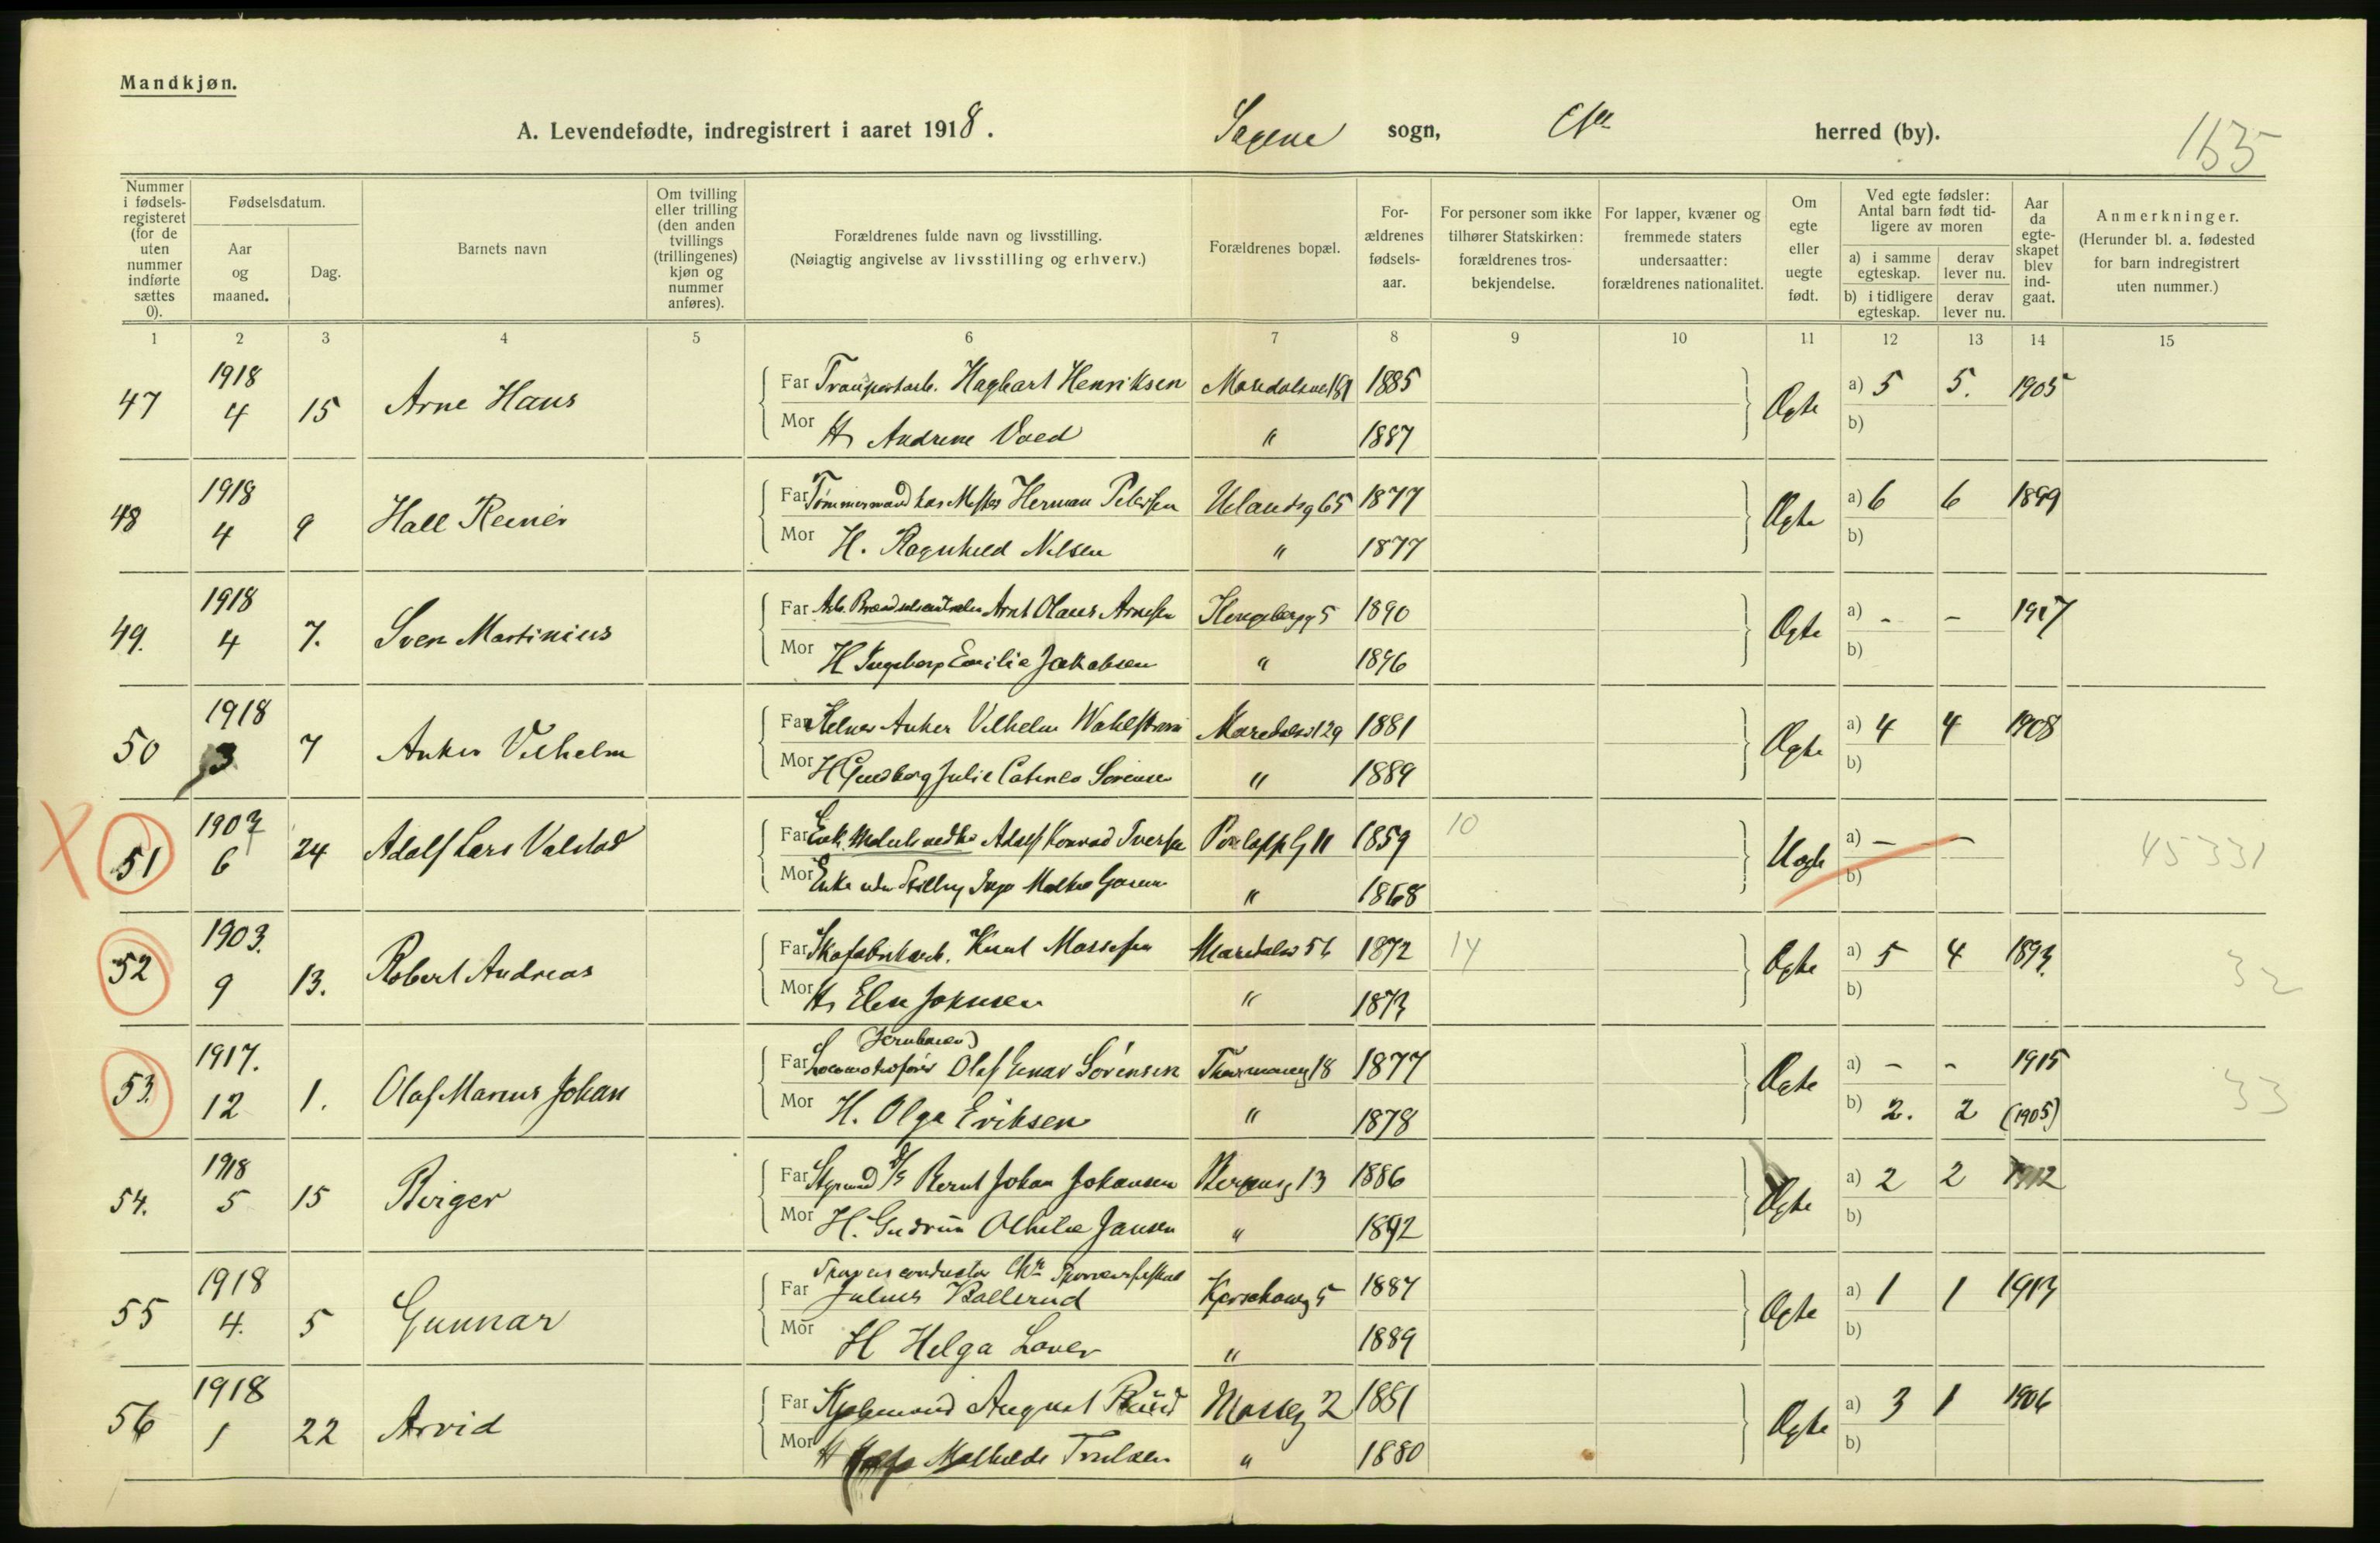 Mandkjøn.
A. Levendefødte, indregistrert i aaret 1918. Sagene sogn, herred (by).
Nummer i fødselsregisteret (for de uten nummer indførte sættes 0).
Fødselsdatum.
Aar og maaned.
Dag.
Barnets navn
Om tvilling eller trilling (den anden tvillings (trillingenes) kjøn og nummer anføres).
Forældrenes fulde navn og livsstilling.
(Nøiagtig angivelse av livsstilling og erhverv.)
Forældrenes bopæl.
Forældrenes fødselsaar.
For personer som ikke tilhører Statskirken: forældrenes trosbekjendelse.
For lapper, kvæner og fremmede staters undersaatter: forældrenes nationalitet.
Om egte eller uegte født.
Ved egte fødsler: Antal barn født tidligere av moren
a) i samme egteskap. derav lever nu.
b) i tidligere egteskap. derav lever nu.
Aar da egteskapet blev indgaat.
Anmerkninger.
(Herunder bl. a. fødested for barn indregistrert uten nummer.)
1 2 3 4 5 6 7 8 9 10 11 12 13 14 15
47 1918 4 15 Arne Hans Far Transportarb. Hagbart Henriksen 1885 Egte a) 5 5. 1905
Mor H Andrine " 1887 b)
48 1918 4 9 Far Tømmermand hos Mester Herman Petersen Uelandsg 65 1877 Egte a) 6 6 1899
Mor H. Ragnhild Nilsen " 1877 b)
49. 1918 4 7. Sven Martinius Far Arb. Arnt Olaus Arnesen 5 1890 Egte a) - - 1917
Mor H Ingeborg Emilie Jakobsen " 1896 b)
50 1918 3 7 Anker Vilhelm Far Kelner Anker Vilhelm 1881 Egte a) 4 4 1908
Mor H Julie Sørensen " 1889 b)
51 1907 6 24 Adolf Lars Valstad Far Adolf Konrad 11 1859 10 Uegte a) - - 45331
Mor Enke " 1868 b)
52 1903. 9 13. Robert Andreas Far Skofabrikarb. Knut 1872 14 Egte a) 5 4 1893. 32
Mor H Elen Johnsen " 1873 b)
53. 1917. 12 1. Olaf Marius Johan Far (Jernbanen) Locomotivfører Olaf Sørensen 18 1877 Egte a) - - 1915 33
Mor H. Olga Eriksen " 1878 b) 2. 2 (1905)
54. 1918 5 15 Birger Far Styrmand Bernt Johan Johansen 13 1886 Egte a) 2 2 1912
Mor H. Gudrun Jansen " 1892 b)
55 1918 4. 5 Gunnar Far Julius 5 1887 Egte a) 1 1 1913
Mor H Helga " 1889 b)
56 1918 1 22 Arvid Far August Ruud Mosseg 2 1881 Egte a) 3 1 1906
Mor H Mathilde " 1880 b)